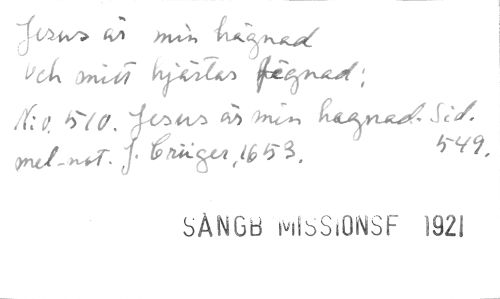 Jesus är min hägnad
Och mitt hjärtas fägnad;
N:o. 510. Jesus är min hägnad. Sid.
mel-not. J. Crüger, 1653. 549.
SÅNGB MISSIONSF 1921